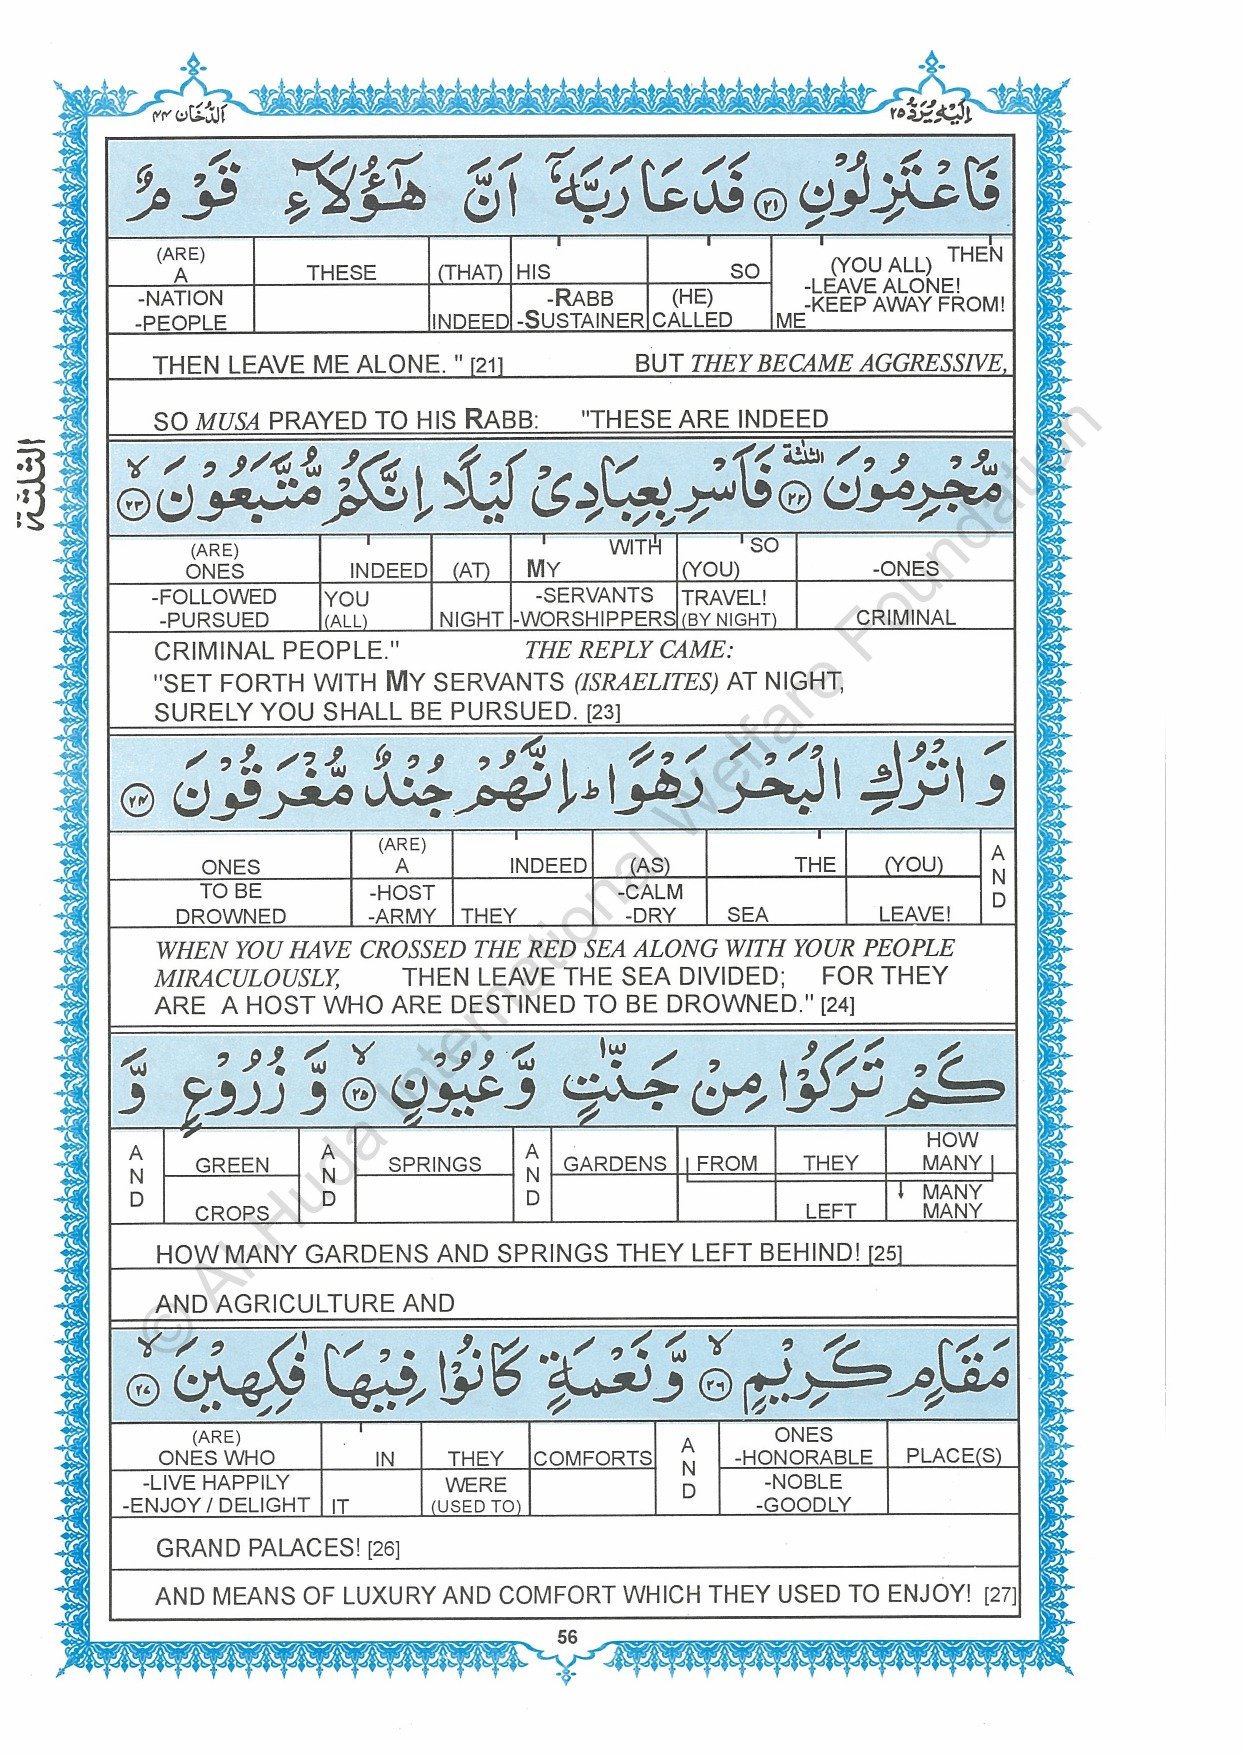 الدُّخَان ٤٤
اِلَيْهِ يُرَدُّ ٢٥
فَاعْتَزِلُوْنِ ٢١ فَدَعَا رَبَّهٗۤ اَنَّ هٰۤؤُلَآءِ قَوْمٌ
(ARE) A THESE (THAT) HIS SO (YOU ALL) THEN
-LEAVE ALONE!
-NATION -RABB (HE) -KEEP AWAY FROM!
-PEOPLE INDEED -SUSTAINER CALLED ME
THEN LEAVE ME ALONE. " [21] BUT THEY BECAME AGGRESSIVE,
SO MUSA PRAYED TO HIS RABB: "THESE ARE INDEED
الثلثة
مُّجْرِمُوْنَ ٢٢ الثلثة فَاَسْرِ بِعِبَادِيْ لَيْلًا اِنَّكُمْ مُّتَّبَعُوْنَ ۙ ٢٣
(ARE) WITH SO
ONES INDEED (AT) MY (YOU) -ONES
-FOLLOWED YOU -SERVANTS TRAVEL!
-PURSUED (ALL) NIGHT -WORSHIPPERS (BY NIGHT) CRIMINAL
CRIMINAL PEOPLE." THE REPLY CAME:
"SET FORTH WITH MY SERVANTS (ISRAELITES) AT NIGHT,
SURELY YOU SHALL BE PURSUED. [23]
وَ اتْرُكِ الْبَحْرَ رَهْوًا ؕ اِنَّهُمْ جُنْدٌ مُّغْرَقُوْنَ ٢٤
(ARE) AND
ONES A INDEED (AS) THE (YOU)
TO BE -HOST -CALM
DROWNED -ARMY THEY -DRY SEA LEAVE!
WHEN YOU HAVE CROSSED THE RED SEA ALONG WITH YOUR PEOPLE
MIRACULOUSLY, THEN LEAVE THE SEA DIVIDED; FOR THEY
ARE A HOST WHO ARE DESTINED TO BE DROWNED." [24]
كَمْ تَرَكُوْا مِنْ جَنّٰتٍ وَّ عُيُوْنٍ ۙ ٢٥ وَّ زُرُوْعٍ وَّ
HOW
AND GREEN AND SPRINGS AND GARDENS FROM THEY MANY
MANY
CROPS LEFT MANY
HOW MANY GARDENS AND SPRINGS THEY LEFT BEHIND! [25]
AND AGRICULTURE AND
مَقَامٍ كَرِيْمٍ ۙ ٢٦ وَّ نَعْمَةٍ كَانُوْا فِيْهَا فٰكِهِيْنَ ۙ ٢٧
(ARE) ONES
ONES WHO IN THEY COMFORTS AND -HONORABLE PLACE(S)
-LIVE HAPPILY WERE -NOBLE
-ENJOY / DELIGHT IT (USED TO) -GOODLY
GRAND PALACES! [26]
AND MEANS OF LUXURY AND COMFORT WHICH THEY USED TO ENJOY! [27]
56
© Al-Huda International Welfare Foundation